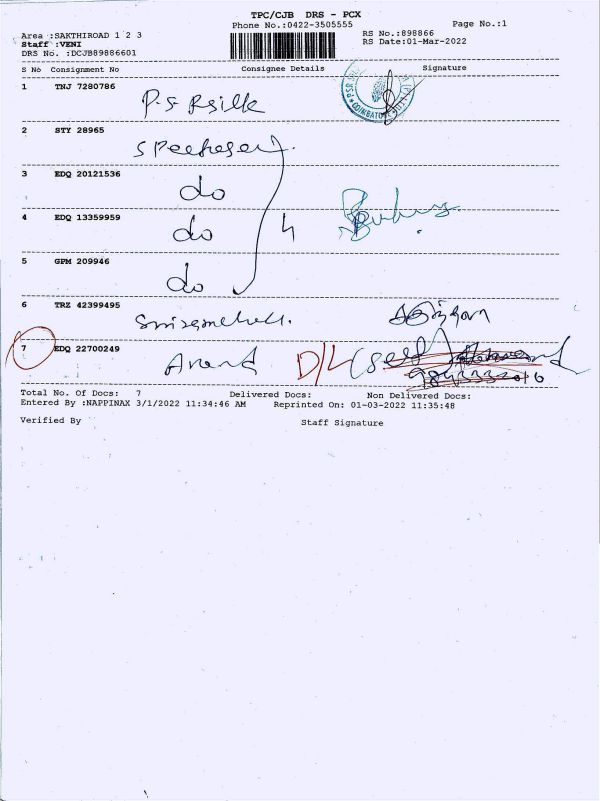 TPC/CJB DRS - PCX
Phone No.:0422-3505555
Page No.:1
Area :SAKTHIROAD 1 2 3
RS No.:898866
Staff :VENI
RS Date:01-Mar-2022
DRS No. :DCJB89886601
S No Consignment No Consignee Details Signature
1 TNJ 7280786 P.S.R silk
2 STY 28965
3 EDQ 20121536 do
4 EDQ 13359959 do 4
5 GPM 209946 do
6 TRZ 42399495
7 EDQ 22700249 Anand D/L (self)
Total No. Of Docs: 7 Delivered Docs: Non Delivered Docs:
Entered By :NAPPINAX 3/1/2022 11:34:46 AM Reprinted On: 01-03-2022 11:35:48
Verified By Staff Signature